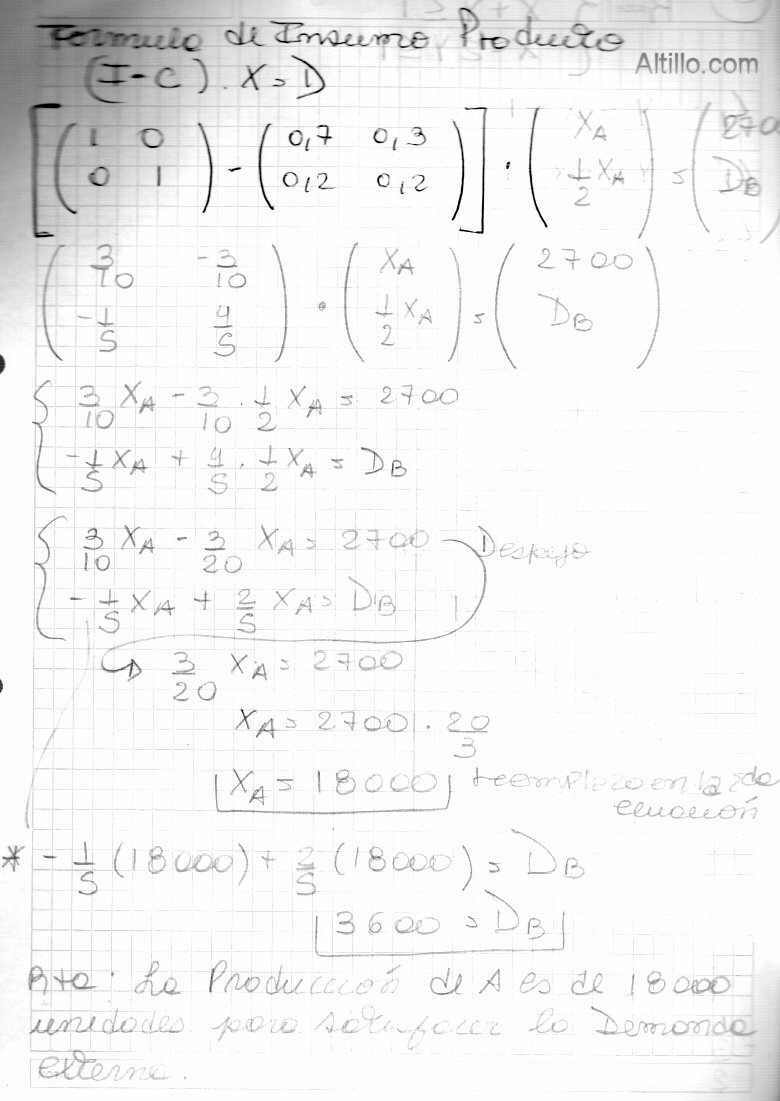 Formula de Insumo Producto
Altillo.com
(I-C) . X = D
[(1 0 / 0 1) - (0,7 0,3 / 0,2 0,2)] . (XA / 1/2 XA) = (2700 / DB)
(3/10 -3/10 / -1/5 4/5) . (XA / 1/2 XA) = (2700 / DB)
3/10 XA - 3/10 . 1/2 XA = 2700
-1/5 XA + 4/5 . 1/2 XA = DB
3/10 XA - 3/20 XA = 2700 Despejo
-1/5 XA + 2/5 XA = DB
3/20 XA = 2700
XA = 2700 . 20/3
XA = 18000 reemplazo en la 2da
ecuación
* -1/5 (18000) + 2/5 (18000) = DB
3600 = DB
Rta: La Producción de A es de 18000
unidades para satisfacer la Demanda
externa.